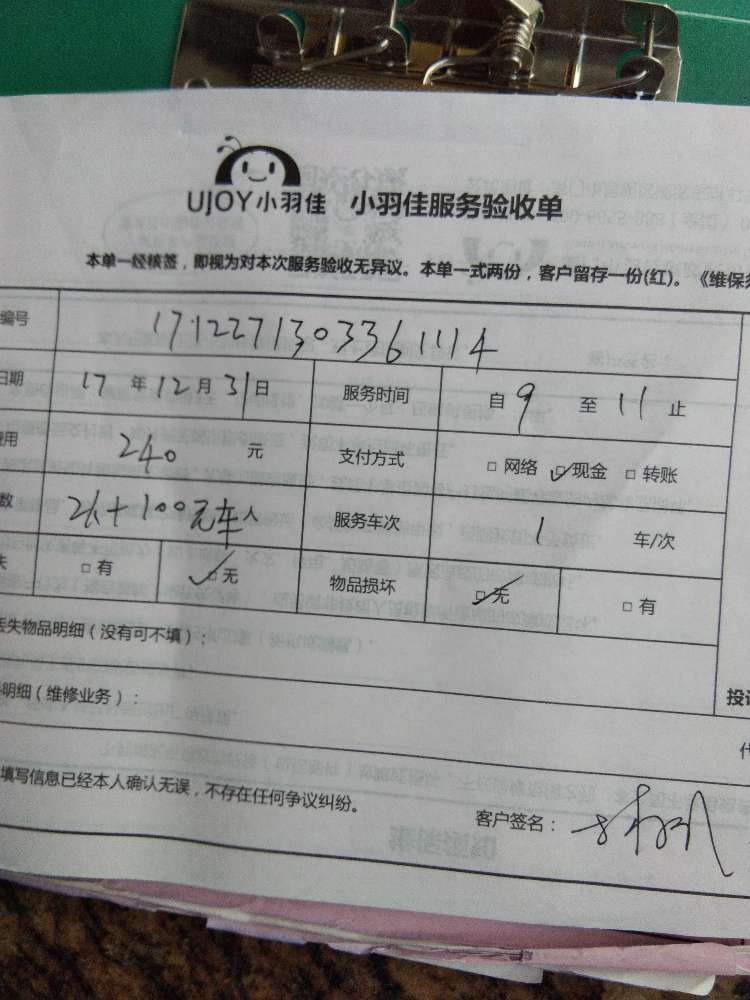 UJOY小羽佳 小羽佳服务验收单
本单一经核签，即视为对本次服务验收无异议。本单一式两份，客户留存一份(红)。《维保
编号 1712271303361114
日期 17 年 12 月 31 日 服务时间 自 9 至 11 止
费用 240 元 支付方式 □ 网络 ☑ 现金 □ 转账
数 2人+100元车 人 服务车次 1 车/次
失 □ 有 ☑ 无 物品损坏 ☑ 无 □ 有
丢失物品明细（没有可不填）：
明细（维修业务）： 投
填写信息已经本人确认无误，不存在任何争议纠纷。 客户签名：